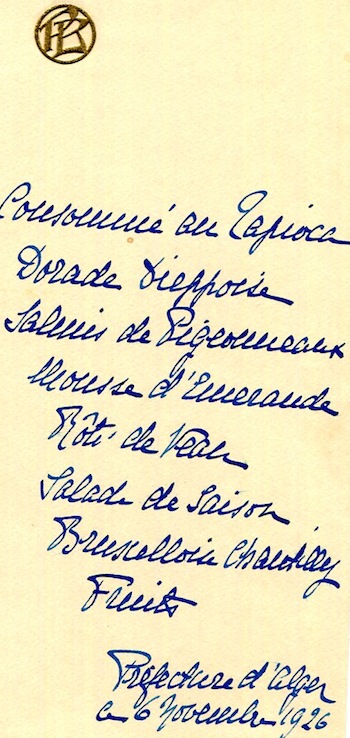 Consommé au Tapioca
Dorade Dieppoise
Salmis de Pigeonneaux
Mousse d'Emeraude
Rôti de Veau
Salade de Saison
Bruxelloise Chantilly
Fruits
Préfecture d'Alger
le 6 Novembre 1926